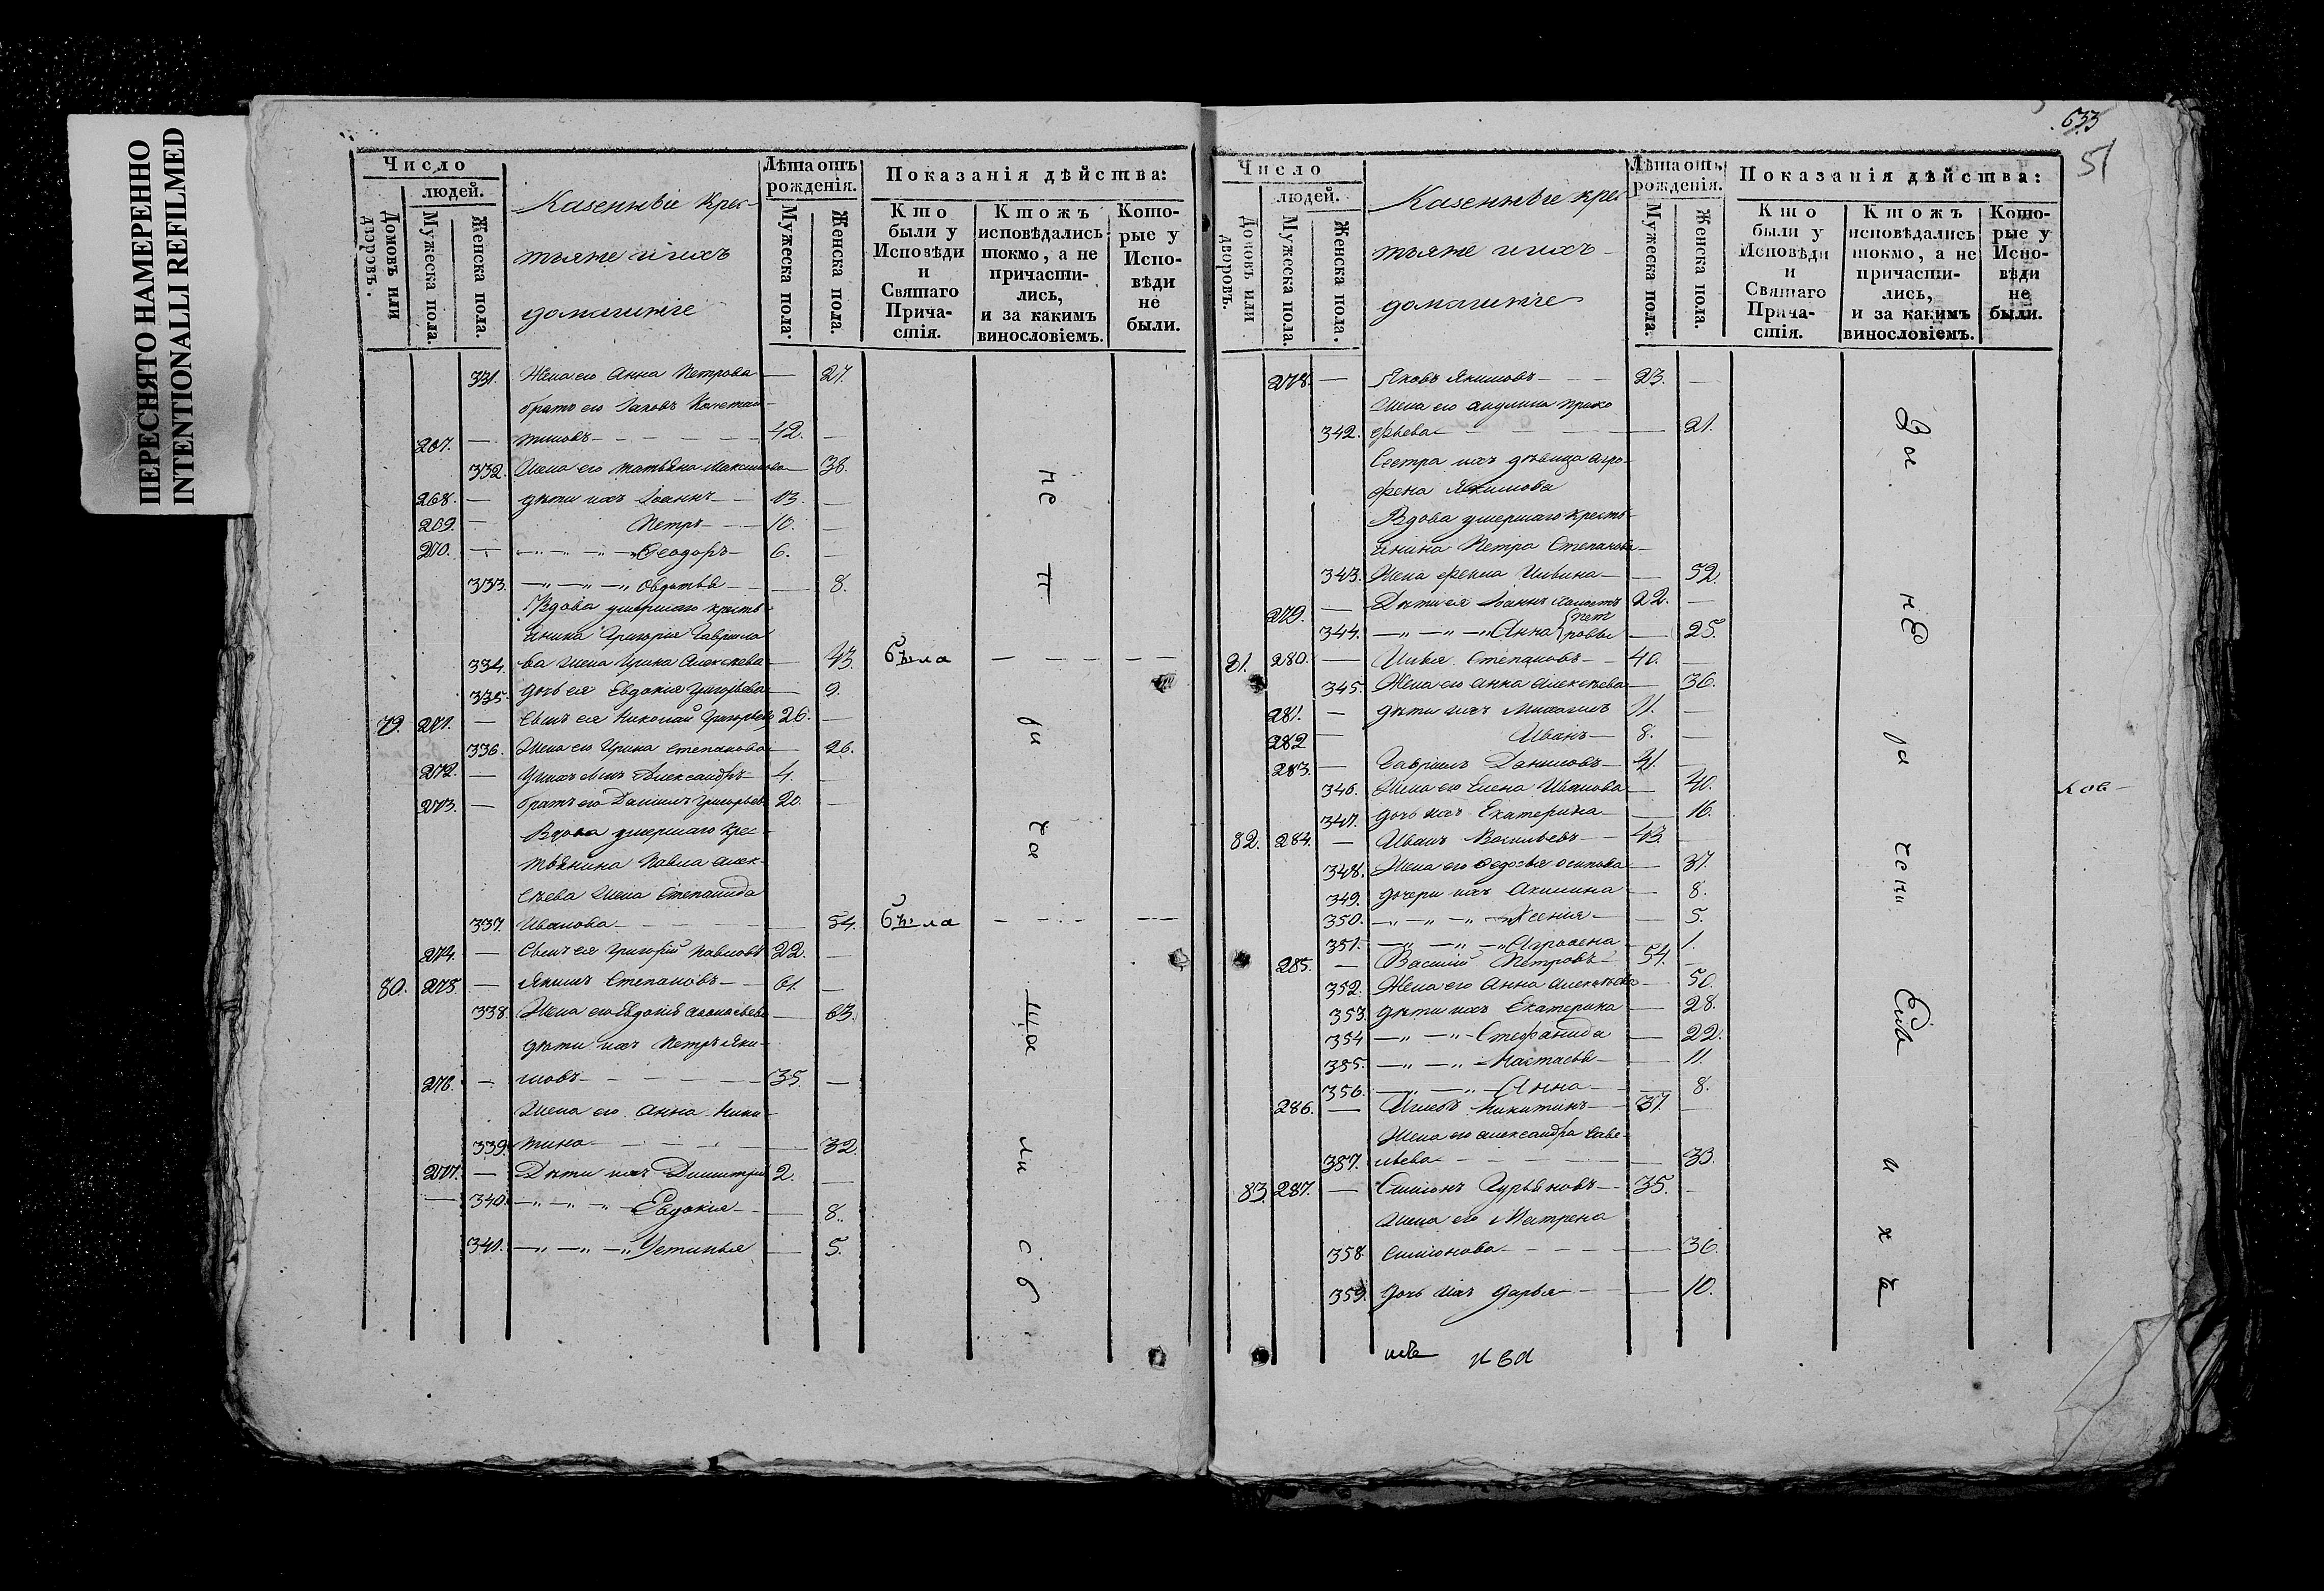 ПЕРЕСНЯТО НАМЕРЕННО
INTENTIONALLI REFILMED
Число
людей.
Домовъ или дворовъ.
Мужеска пола.
Женска пола.
Казенные Крес-
тьяне и ихъ
домашніе
Лѣта отъ рожденія.
Мужеска пола.
Женска пола.
Показанія дѣйства:
Кто были у Исповѣди и Святаго Причастія.
Ктожъ исповѣдались токмо, а не причастились, и за какимъ винословіемъ.
Которые у Исповѣди не были.
331. Жена его Анна Петрова — 27.
братъ его Іаковъ Констан-
267. — тиновъ 42. —
332. Жена его татьяна Максимова — 38.
268. — дѣти ихъ Іоаннъ 13. —
269. — Петръ 10. —
270. — Ѳеодоръ 6. —
333. Овдотья — 8.
Вдова умершаго кресть-
янина Григорія Гаврило
334. ва жена Ирина Алексѣева — 43. была
335. дочь ея Евдокія Григорьева — 9.
79. 271. — Сынъ ея Николай Григорьевъ 26. —
336. Жена его Ирина степанова — 26.
272. — у нихъ сынъ Александръ 4. —
273. — братъ его Даніилъ Григорьевъ 20. —
Вдова умершаго крес-
тьянина Павла Алек-
сѣева жена Степанида
337. Иванова — 54. была
274. — Сынъ ея Григорій Павловъ 22. —
80. 275. — Якимъ Степановъ 61. —
338. Жена его Евдокія — 63.
дѣти ихъ Петръ Яки-
276. — мовъ 35. —
Жена его Анна Ники-
339. тина — 32.
277. — Дѣти ихъ Димитрій 2. —
— 340. Евдокія — 8.
341. Устинья — 5.
не при ча ща ли с б
633
51
Число
людей.
Домовъ или дворовъ.
Мужеска пола.
Женска пола.
Казенные крес
тьяне и ихъ
домашніе
Лѣта отъ рожденія.
Мужеска пола.
Женска пола.
Показанія дѣйства:
Кто были у Исповѣди и Святаго Причастія.
Ктожъ исповѣдались токмо, а не причастились, и за какимъ винословіемъ.
Которые у Исповѣди не были.
278. — Яковъ Якимовъ 23. —
Жена его акулина проко
342. фьева — 21.
Сестра ихъ дѣвица агро-
фена Якимова
Вдова умершаго кресть-
янина Петра Степанова
343. Жена — 52.
279. — Дѣти ея Іоаннъ 22. —
344. Анна Пет ровы — 25.
81. 280. — Илья Степановъ 40. —
345. Жена его анна алексѣева — 36.
281. — дѣти ихъ Михаилъ 11. —
282 — Иванъ 8. —
283. — Гавріилъ Даниловъ 41. —
346. Жена его Елена Иванова — 40.
347. дочь ихъ Екатерина — 16.
82. 284. — Иванъ Васильевъ 43. —
348. Жена его Ѳедосья осипова — 37.
349. дочери ихъ Акилина — 8.
350. Ксенія — 5.
351. Агрофена — 1.
285. — Василій Петровъ 54. —
352. Жена его Анна алексѣева — 50.
353. дѣти ихъ Екатерина — 28.
354 Стефанида — 22.
355. Настасья — 11.
356. Анна — 8.
286. — Никитинъ 37. —
Жена его александра Саве-
357. льева — 33.
83. 287. — Симіонъ Гурьяновъ 35. —
Жена его Матрена
358. симіонова — 36.
359. дочь ихъ дарья — 10.
За не ра че ни Емъ и хъ
ков